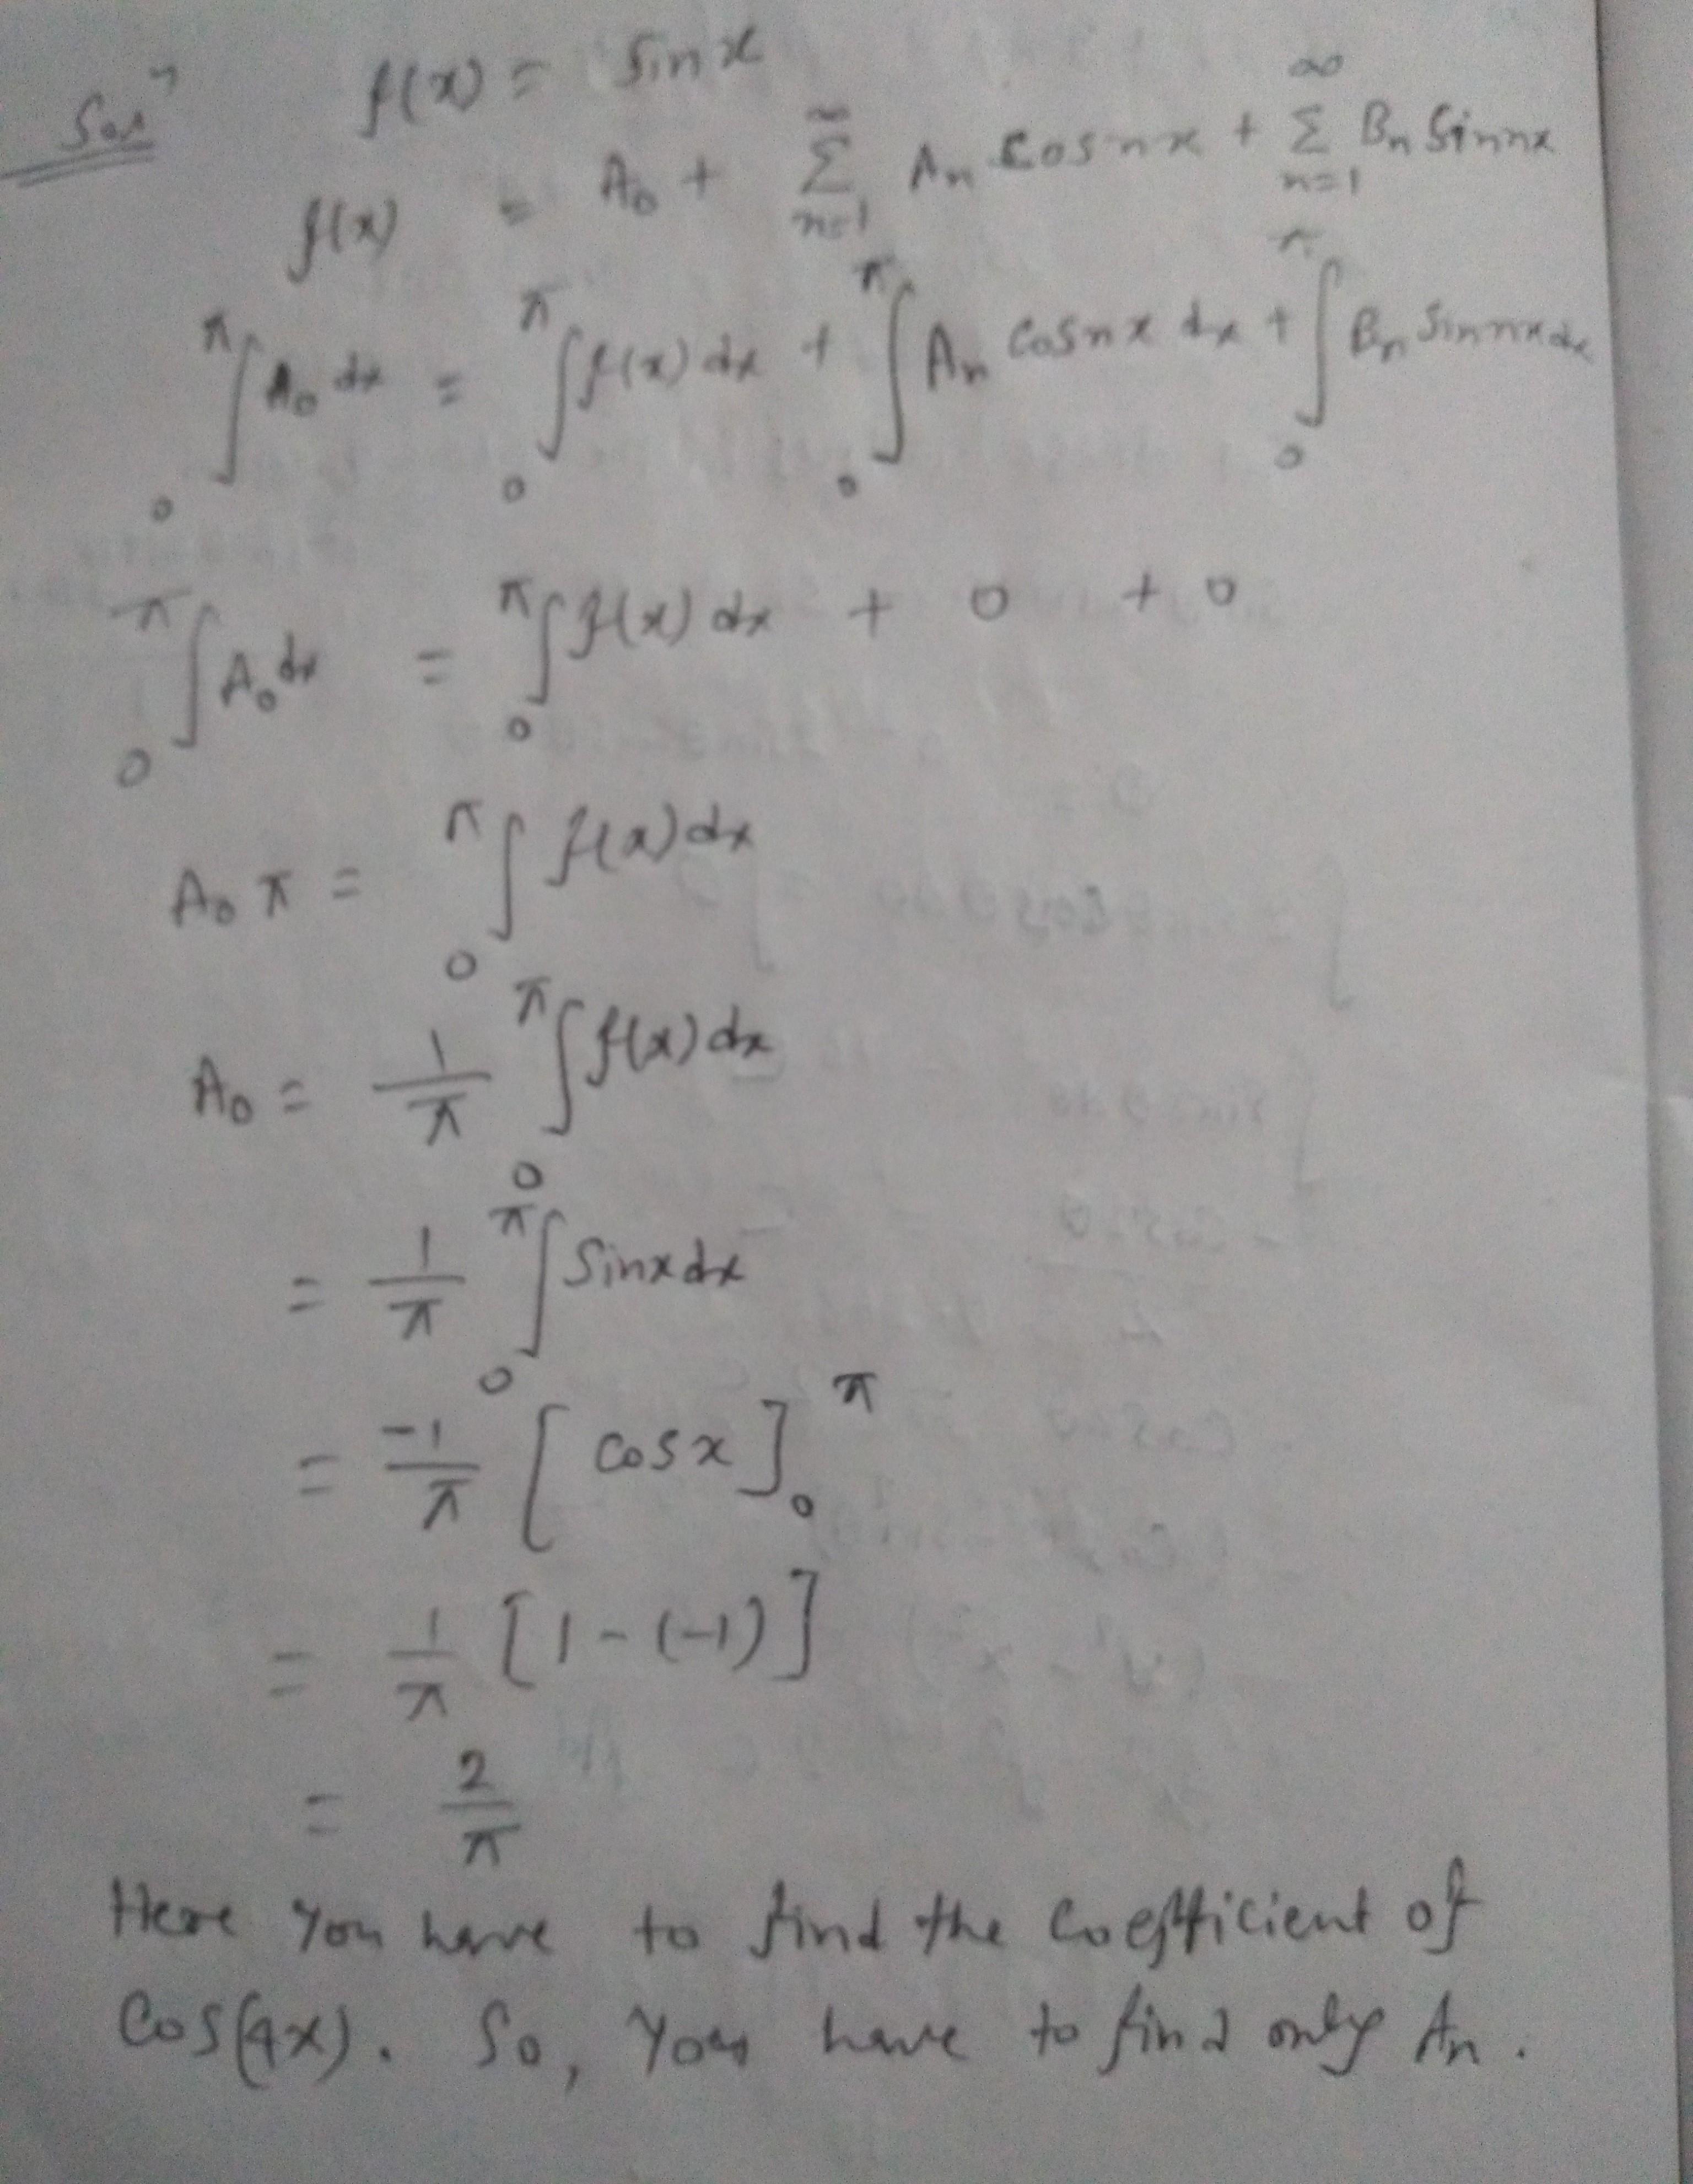 Solⁿ f(x) = Sinx
f(x) = A₀ + ∞Σn=1 An Cosnx + ∞Σn=1 Bn Sinnx
π∫0 A₀ dx = π∫0 f(x) dx + π∫0 An Cosnx dx + π∫0 Bn Sinnx dx
π∫0 A₀ dx = π∫0 f(x) dx + 0 + 0
A₀ π = π∫0 f(x) dx
A₀ = 1/π π∫0 f(x) dx
= 1/π π∫0 Sinx dx
= -1/π [cosx]0 π
= 1/π [1-(-1)]
= 2/π
Here you have to find the Coefficient of
Cos(4x). So, You have to find only An.